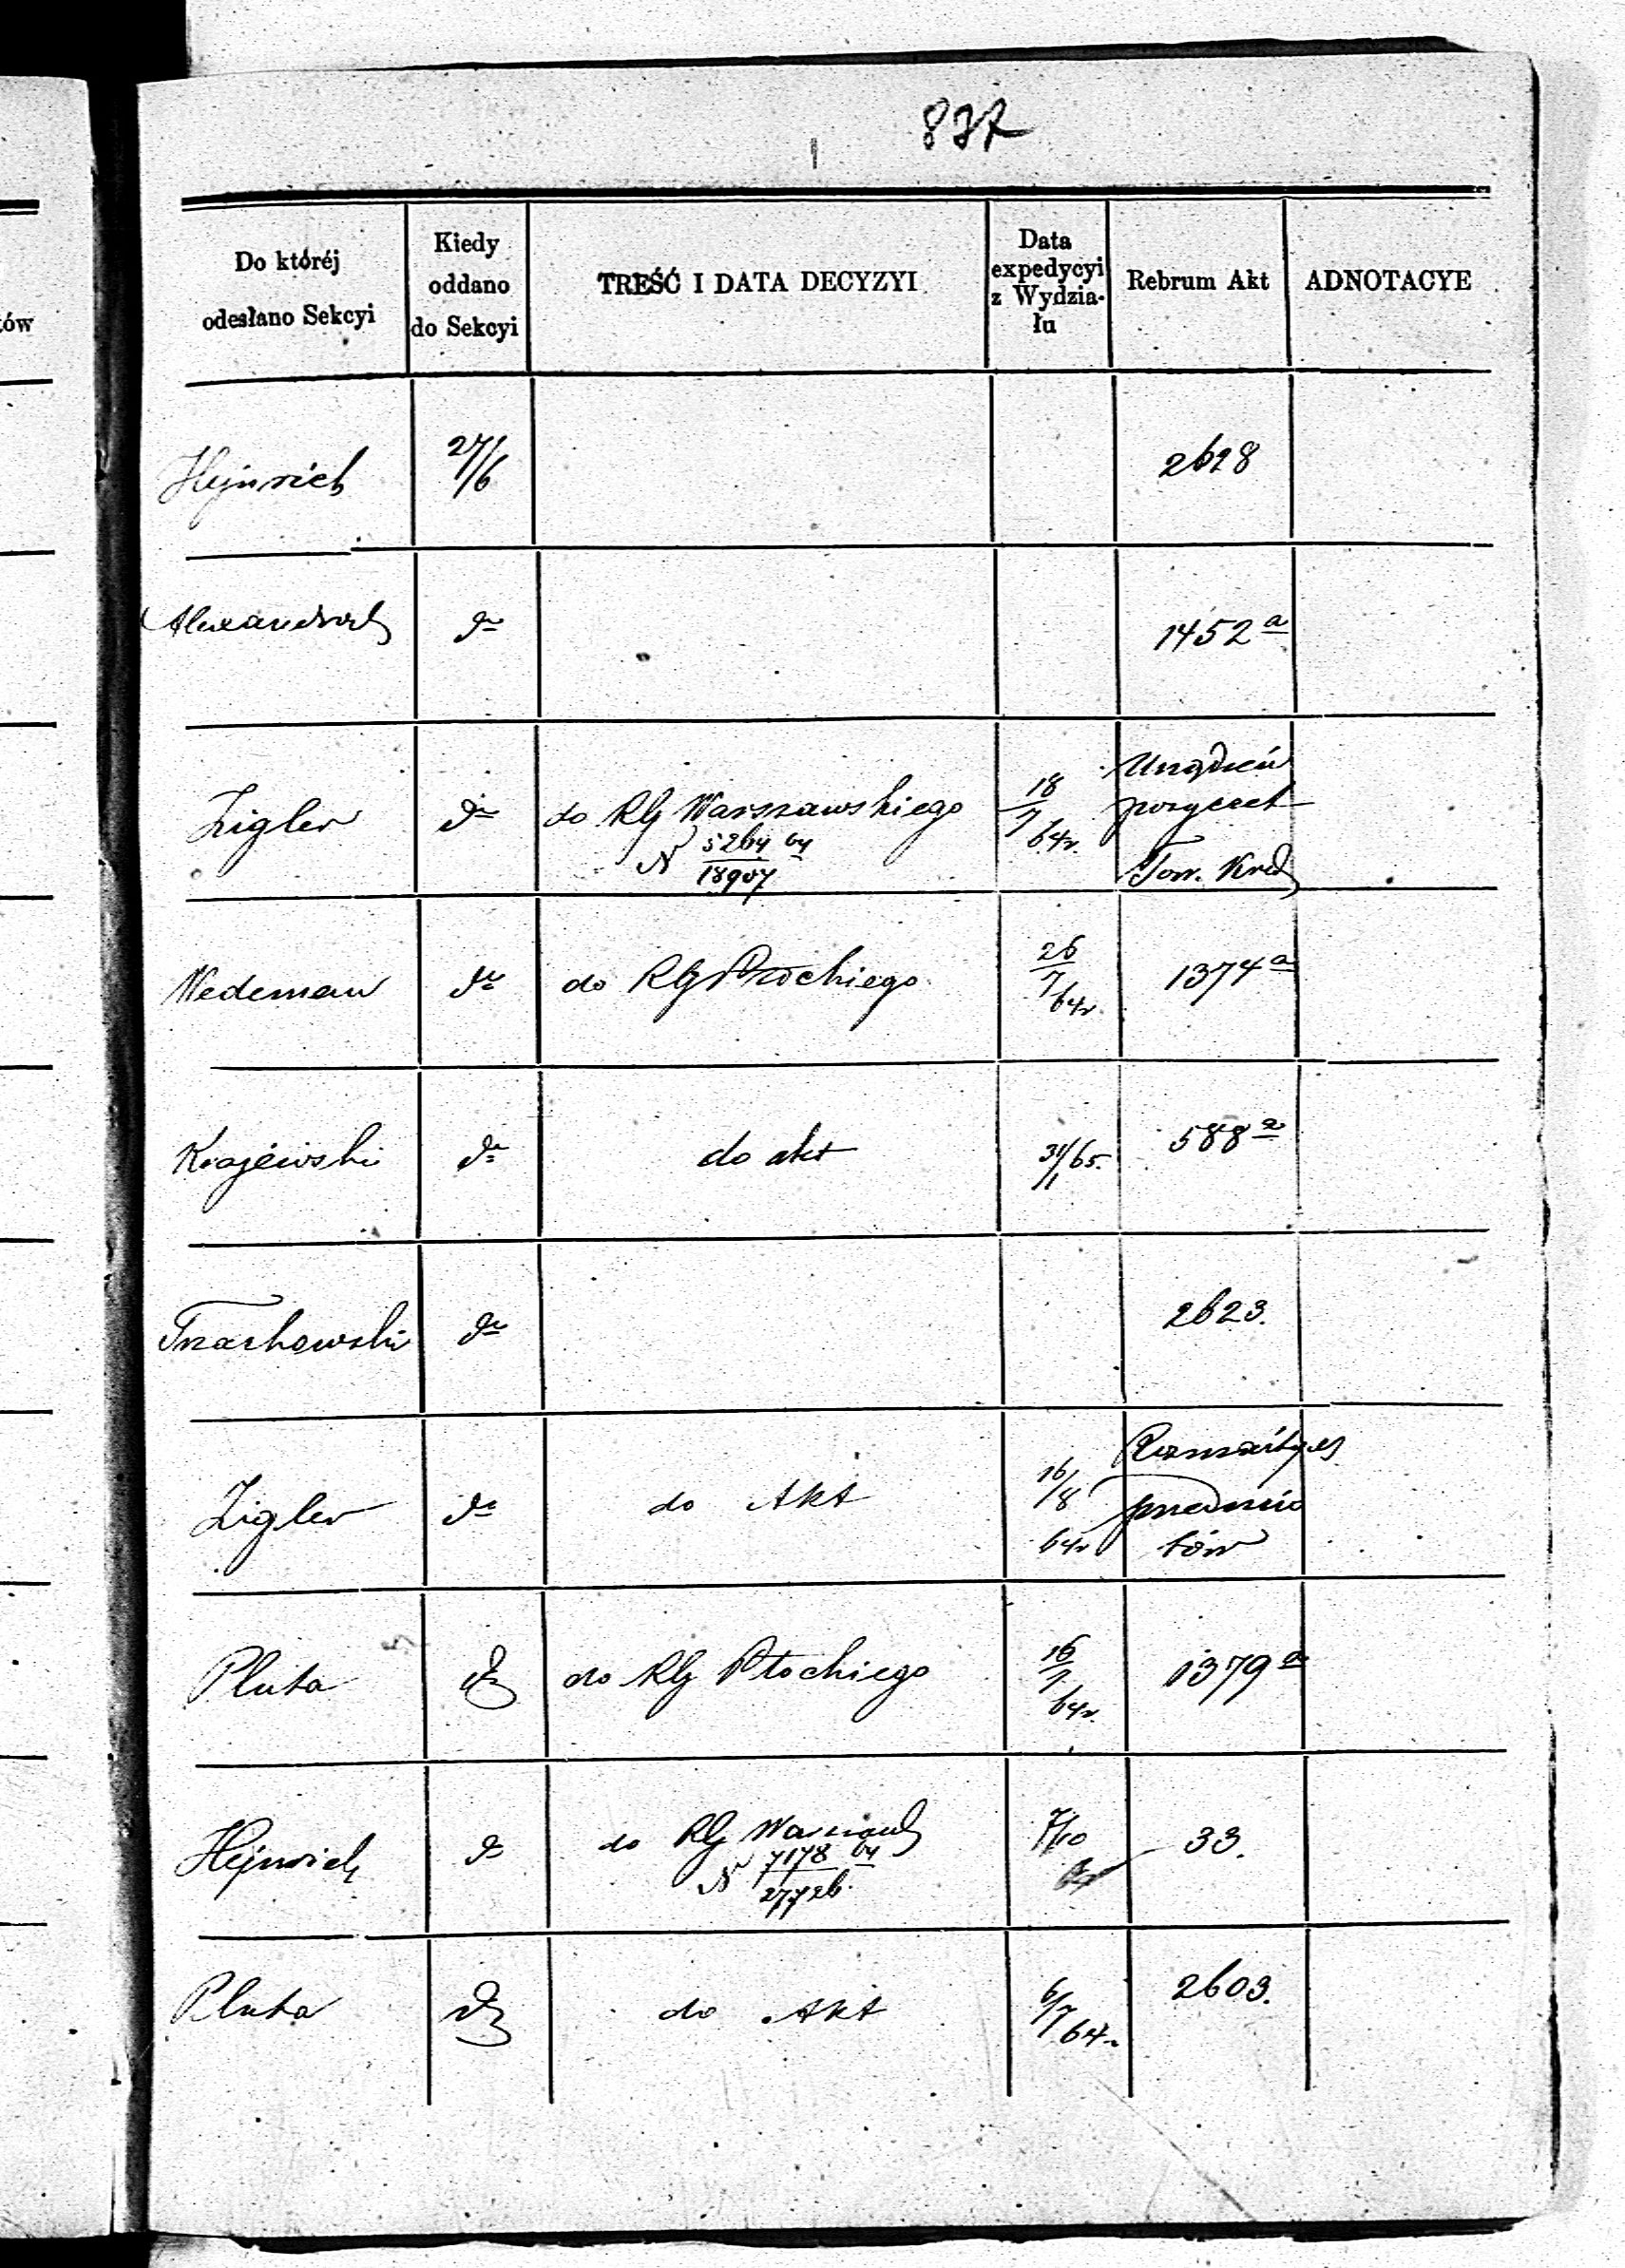 837
Do któréj
odesłano Sekcyi
Kiedy
oddano
do Sekcyi
TREŚĆ I DATA DECYZYI
Data
expedycyi
z Wydzia-
łu
Rebrum Akt
ADNOTACYE
ów
Hejnrich
27/6
2628
1452 a
Zigler
do
do RG Warszawskiego
N 5264 64
18907
18
7 64r.
Urządzeń
pożyczek
Tow. Kred
Wedeman
do
do RG Płockiego
26
7
64r.
1374 a
Krajewski
do
do akt
31/1 65.
588 a
do
2623.
Zigler
do
do Akt
16/8
64r
przedmio
tów
Pluta
do
do RG Płockiego
16
7
64r.
1379 a
Hejnrich
do
do RG Warszawsk
N 7178 64
27726.
7/10
33.
Pluta
do
do Akt
6/7 64r
2603.